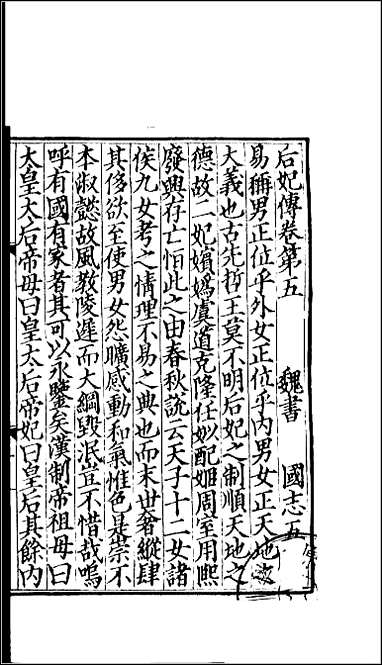 后妃傳卷第五 魏書 國志五
易稱男正位乎外女正位乎内男女正天地
大義也古先哲王莫不明后妃之制順天地之
德故二妃嬪嬀虞道克隆任妙配姬周至用熙
廢興存亡恒此之由春秋說云天子十二女諸
侯九女考之情理不易之典也而末世奢縱肆
其侈欲至使男女怨曠感動和氣惟色是崇不
本淑懿故風教陵遲而大綱毀泯豈不惜哉嗚
呼有國有家者其可以永鑒矣漢制帝祖母曰
太皇太后帝母曰皇太后帝妃曰皇后其餘内